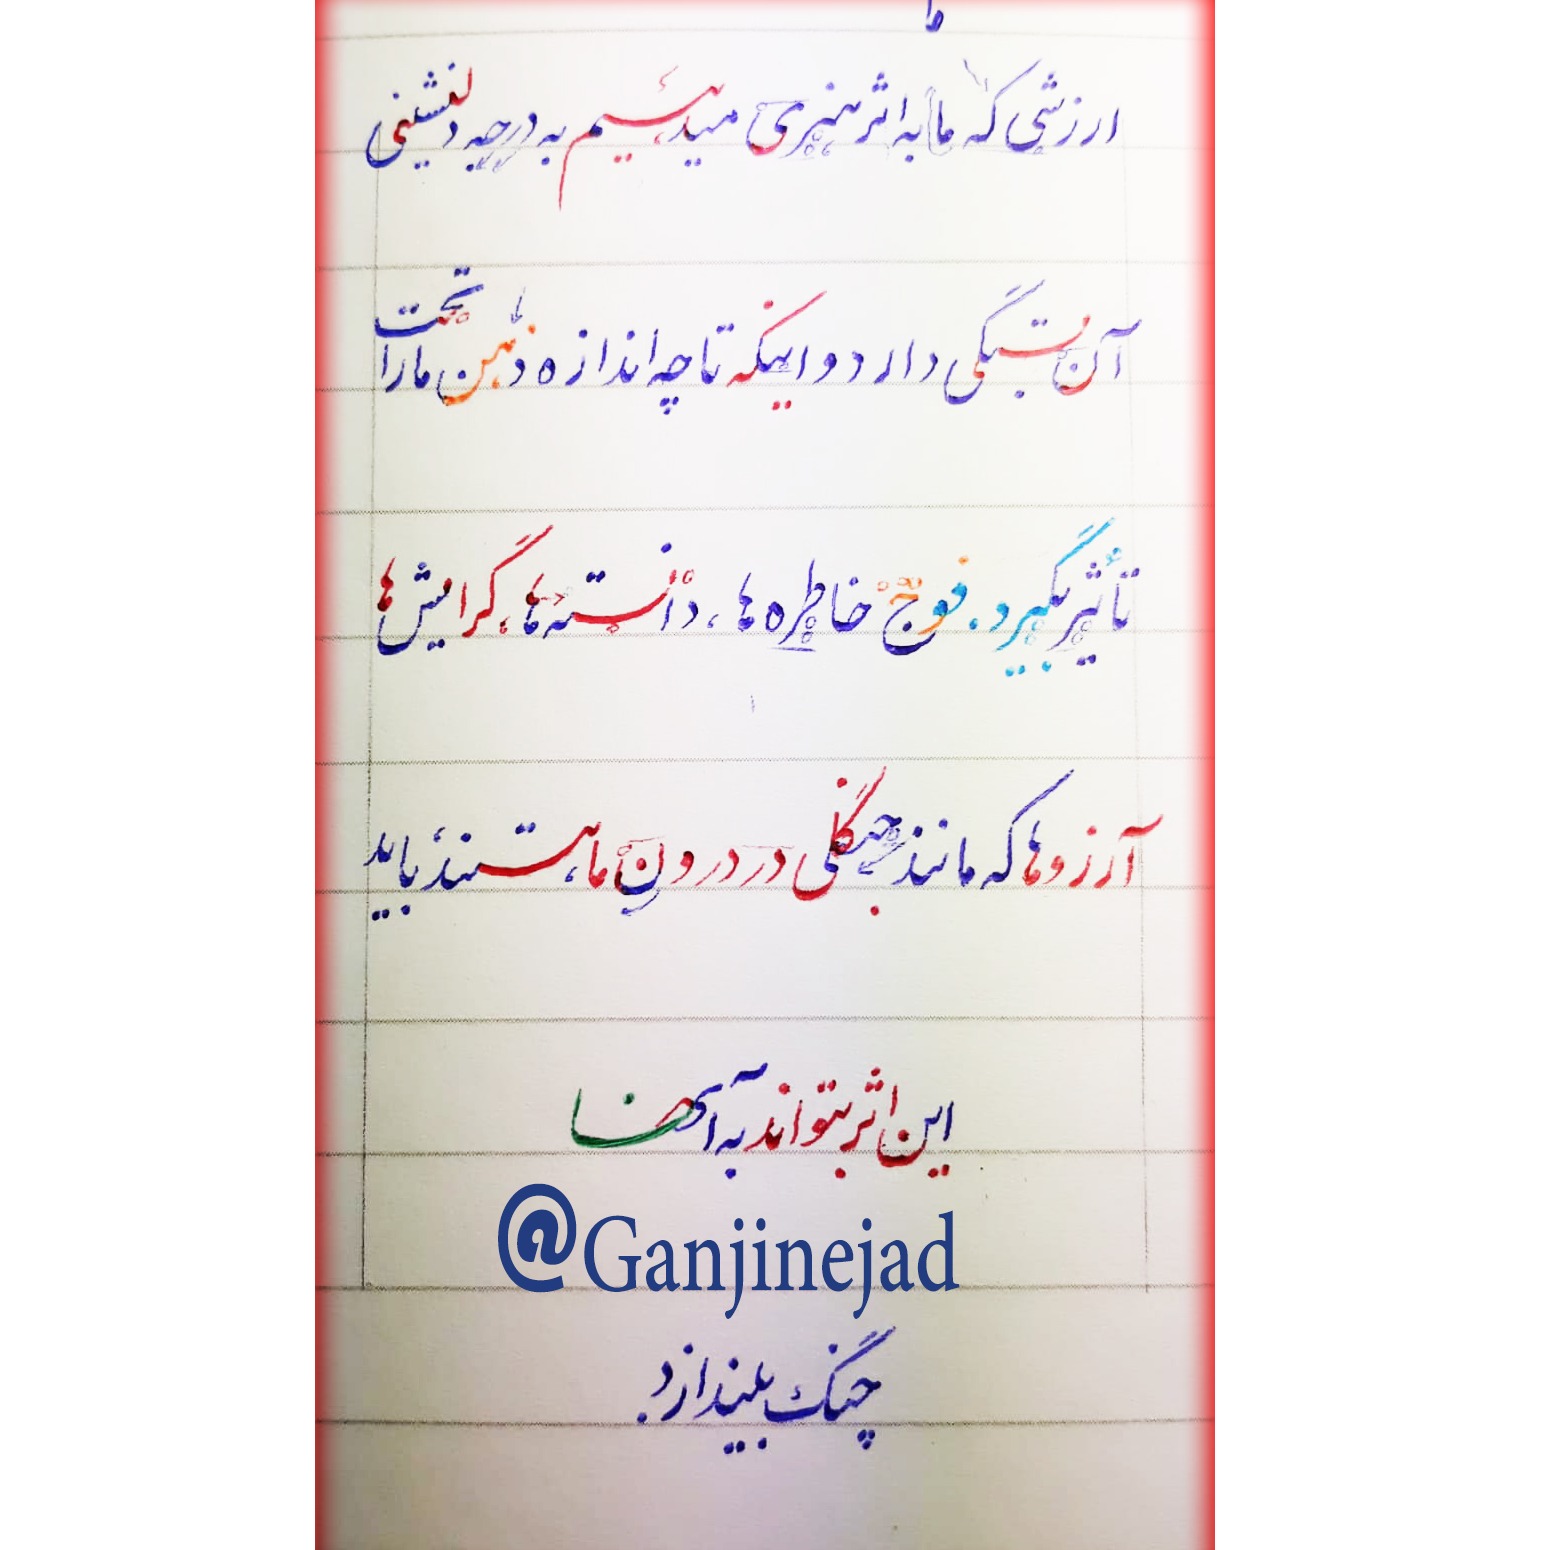 ارزشی که ما به اثر هنری میدهیم به درجه دلنشینی
آن بستگی دارد و اینکه تا چه اندازه ذهن ما را تحت
تأثیر بگیرد. فوج خاطره ها، دانسته ها، گرایش ها
آرزوها که مانند جنگلی در درون ما هستند باید
این اثر بتواند به آنها
@Ganjinejad
چنگ بیندازد.